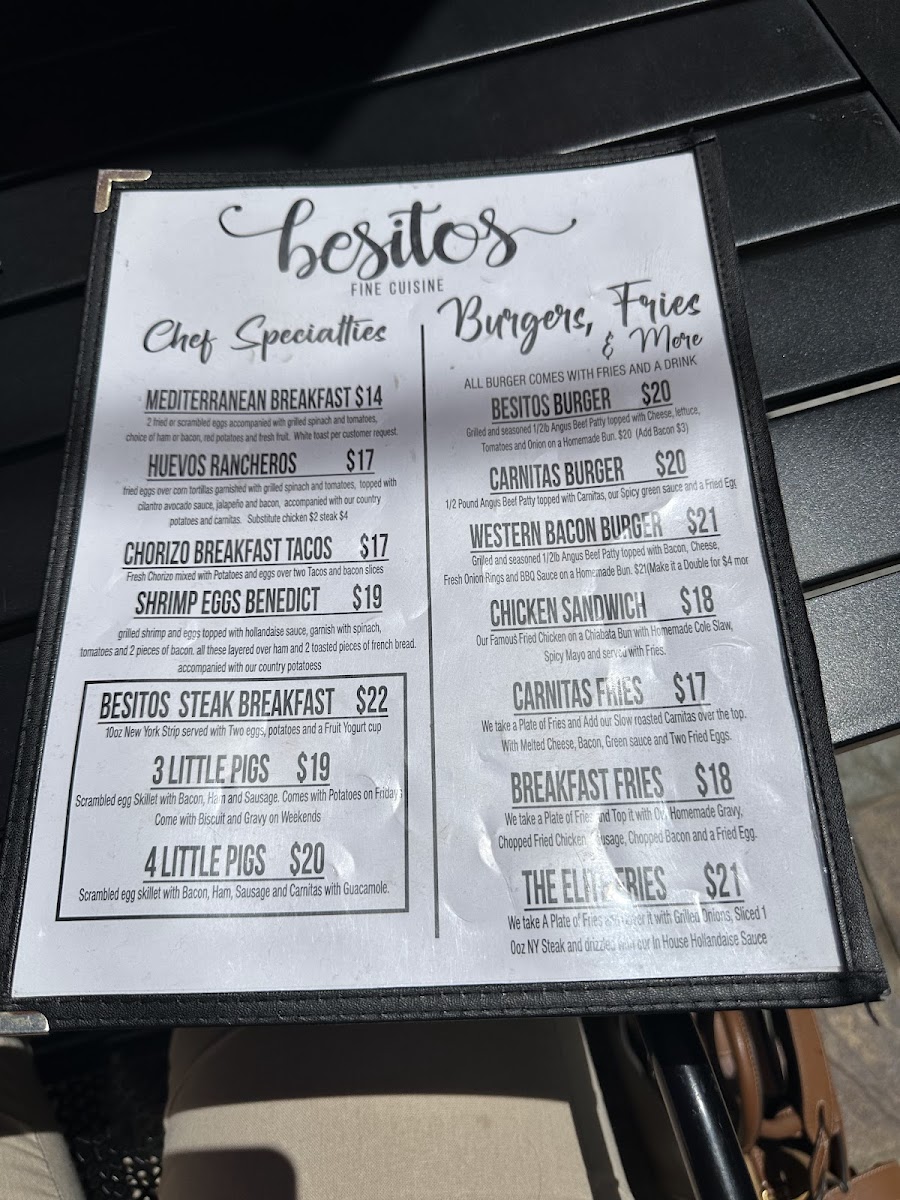 besitos
FINE CUISINE
Chef Specialties
MEDITERRANEAN BREAKFAST $14
2 fried or scrambled eggs accompanied with grilled spinach and tomatoes,
choice of ham or bacon, red potatoes and fresh fruit. White toast per customer request.
HUEVOS RANCHEROS $17
fried eggs over corn tortillas garnished with grilled spinach and tomatoes, topped with
cilantro avocado sauce, jalapeño and bacon, accompanied with our country
potatoes and carnitas. Substitute chicken $2 steak $4
CHORIZO BREAKFAST TACOS $17
Fresh Chorizo mixed with Potatoes and eggs over two Tacos and bacon slices
SHRIMP EGGS BENEDICT $19
grilled shrimp and eggs topped with hollandaise sauce, garnish with spinach,
tomatoes and 2 pieces of bacon. all these layered over ham and 2 toasted pieces of french bread.
accompanied with our country potatoess
BESITOS STEAK BREAKFAST $22
10oz New York Strip served with Two eggs, potatoes and a Fruit Yogurt cup
3 LITTLE PIGS $19
Scrambled egg Skillet with Bacon, Ham and Sausage. Comes with Potatoes on Fridays
Come with Biscuit and Gravy on Weekends
4 LITTLE PIGS $20
Scrambled egg skillet with Bacon, Ham, Sausage and Carnitas with Guacamole.
Burgers, Fries
& More
ALL BURGER COMES WITH FRIES AND A DRINK
BESITOS BURGER $20
Grilled and seasoned 1/2lb Angus Beef Patty topped with Cheese, lettuce,
Tomatoes and Onion on a Homemade Bun. $20 (Add Bacon $3)
CARNITAS BURGER $20
1/2 Pound Angus Beef Patty topped with Carnitas, our Spicy green sauce and a Fried Egg
WESTERN BACON BURGER $21
Grilled and seasoned 1/2lb Angus Beef Patty topped with Bacon, Cheese,
Fresh Onion Rings and BBQ Sauce on a Homemade Bun. $21(Make it a Double for $4 mor
CHICKEN SANDWICH $18
Our Famous Fried Chicken on a Chiabata Bun with Homemade Cole Slaw,
Spicy Mayo and served with Fries.
CARNITAS FRIES $17
We take a Plate of Fries and Add our Slow roasted Carnitas over the top.
With Melted Cheese, Bacon, Green sauce and Two Fried Eggs.
BREAKFAST FRIES $18
We take a Plate of Fries and Top it with Our Homemade Gravy,
Chopped Fried Chicken, Sausage, Chopped Bacon and a Fried Egg.
THE ELITE FRIES $21
We take A Plate of Fries it with Grilled Onions, Sliced 1
0oz NY Steak and drizzled with our In House Hollandaise Sauce